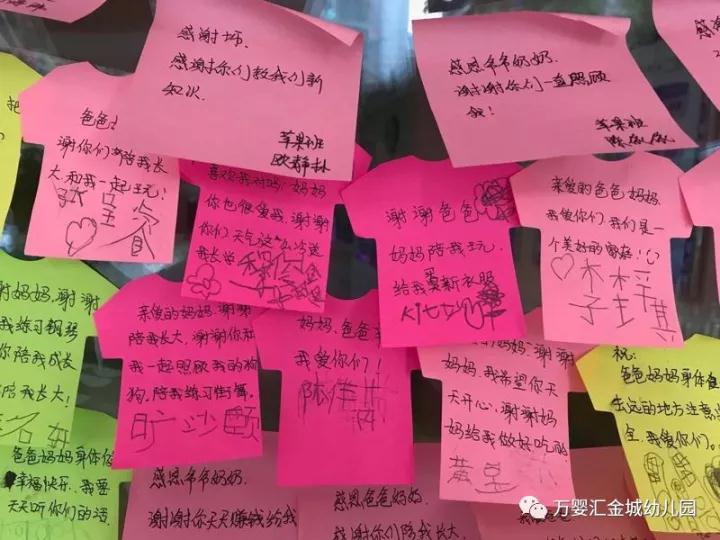 感谢坏.
感谢你们教我们新
知识.
苹果班
感恩爷爷奶奶.
谢谢你们一直照顾
我!
苹果班
爸爸
谢你们陪我长
大.和我一起玩!
喜欢我对吗?妈妈
你也很爱我.谢谢
你们天气这么冷送
我上学
谢谢爸爸
妈妈陪我玩.
给我买新衣服
亲爱的爸爸.妈妈.
我爱你们.我们是一
个美好的家庭!
林梓
子 琪
妈妈.谢谢
我练习钢琴
你陪我成长
陪我长大!
亲爱的妈妈.谢谢
陪我长大.谢谢你和
我一起照顾我的狗
狗.陪我练习街舞.
邝沙颐
妈妈.爸爸
我爱你们!
妈妈.谢谢
妈妈.我希望你天
天开心.谢谢妈
妈给我做好吃的.
黄
祝:
爸爸妈妈身体健
去远的地方注意
全.我爱你们.
爸爸妈妈身体健
幸福快乐.我要
天天听你们的话.
感恩爷爷奶奶.
谢谢你天天赚钱给我
感恩爸爸妈妈.
谢谢你们陪我长大.
万婴汇金城幼儿园